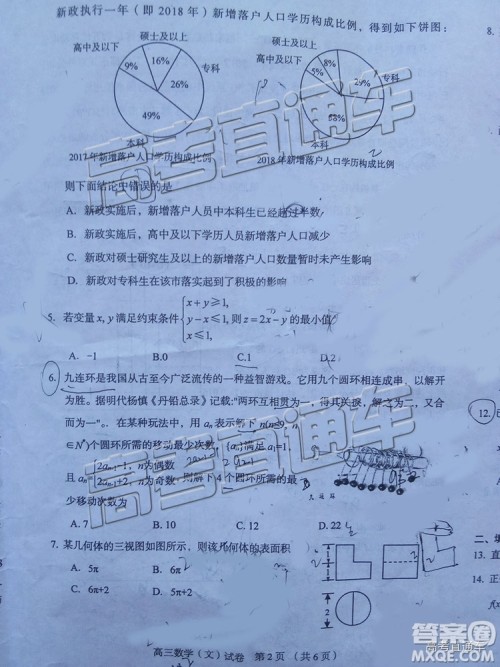 新政执行一年（即 2018 年）新增落户人口学历构成比例，得到如下饼图：
硕士及以上
高中及以下
9%
16%
专科
26%
49%
本科
2017年新增落户人口学历构成比例
硕士及以上
高中及以下
5%
8%
专科
29%
58%
本科
2018 年新增落户人口学历构成比例
则下面结论中错误的是
A．新政实施后，新增落户人员中本科生已经超过半数
B．新政实施后，高中及以下学历人员新增落户人口减少
C．新政对硕士研究生及以上的新增落户人口数量暂时未产生影响
D．新政对专科生在该市落实起到了积极的影响
5．若变量 x, y 满足约束条件
x + y ≥ 1,
y − x ≤ 1,
x ≤ 1,
则 z = 2x − y 的最小值
A．-1 B.0 C.1 D.2
6．九连环是我国从古至今广泛流传的一种益智游戏。它用九个圆环相连成串，以解开
为胜。据明代杨慎《丹铅总录》记载:"两环互相贯为一，得其关捩，解之为二，又合
而为一"。在某种玩法中，用 aₙ 表示解下 n(n≤9, n
∈N*)个圆环所需的移动最少次数，{aₙ}满足 a₁=1,
且 aₙ=
2aₙ₋₁-1, n为偶数
2aₙ₋₁+2, n为奇数
，则解下 4 个圆环所需的最
少移动次数为
A. 7 B. 10 C. 12 D. 22
7．某几何体的三视图如图所示，则该几何体的表面积
A．5π B．6π
C．6π+2 D．5π+2
2
2
高三数学（文）试卷 第2页（共6页）
8.
12.
二、填
13.
14.
f(x
15.
16.
高考直通车
高考直通车
高考直通车
答案圈
MXQE.COM